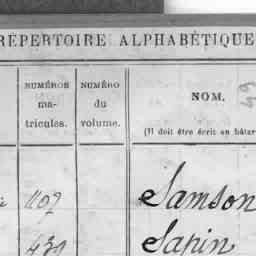 RÉPERTOIRE ALPHABÉTIQUE
NUMÉROS
ma-
tricules.
NUMÉRO
du
volume.
NOM.
(Il doit être écrit en bâtar
49
1107
Samson
431
Sapin